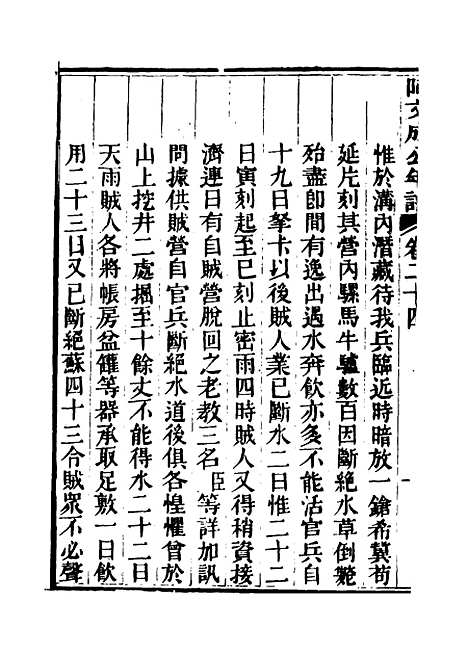 阿文成公年譜 卷二十四
惟於溝內潛藏待我兵臨近時暗放一鎗希冀苟
延片刻其營內騾馬牛驢數百因斷絕水草倒斃
殆盡卽間有逸出遇水奔飲亦多不能活官兵自
十九日拏卡以後賊人業已斷水二日惟二十二
日寅刻起至巳刻止密雨四時賊人又得稍資接
濟連日有自賊營脫回之老教三名臣等詳加訊
問據供賊營自官兵斷絕水道後俱各惶懼曾於
山上挖井二處掘至十餘丈不能得水二十二日
天雨賊人各將帳房盆罐等器承取足敷一日飲
用二十三日又已斷絕蘇四十三令賊眾不必聲